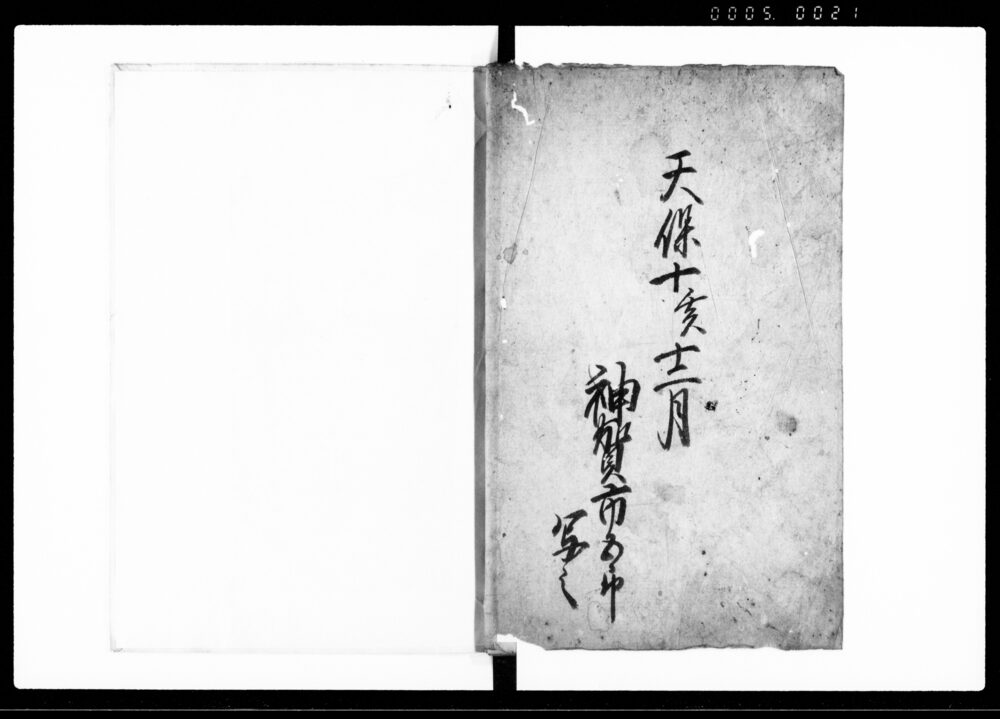 0005. 0021
天保十亥十二月
神賀市五郎
写之